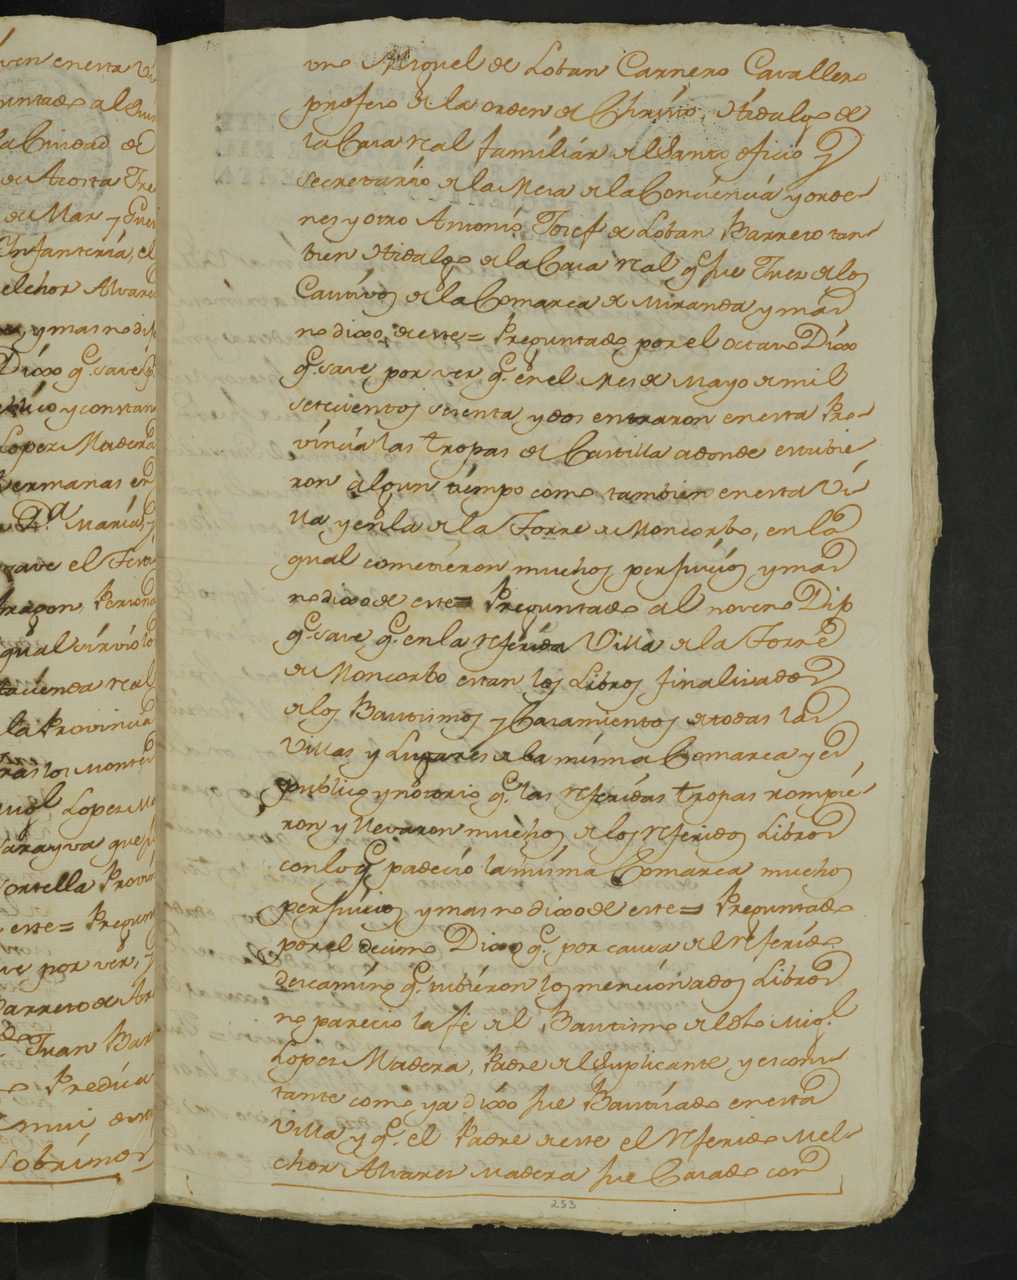 ven en esta Vi
untado al
la Ciudad de
de Acosta The
de Mar y
Infanteria, el
elchor Alvares
y mas no di
Dixo q.e save
co y constan
Lopez Madera
ermanas en
D.a Maria, y
save el
ragon Persona
qual sirvió
tacienda real
la Provincia
Montes
uel Lopez Ma
para yva que
ortella Provi
este = Pregun
ve por ver, y
Barreto de
do Juan Barr
Predica
mui
Sobrinos
uno Miguel de Loban Carnero Cavallero
profeso de la orden de Christo, Hidalgo de
la Casa real familiár del Santo oficio y
secretario de la Mesa de la Conciencia y orde-
nes y otro Antonio Josef de Loban Barreto tan-
bien Hidalgo de la Casa real q.e fue Juez de los
Cautivos de la Comarca de Miranda y mas
no dixo de este = Preguntado por el octavo Dixo
q.e save por ver q.e en el Mes de Mayo de mil
setecientos sesenta y dos entraron en esta Pro-
vincia las tropas de Castilla adonde estubie-
ron algun tiempo como tambien en esta Vi-
lla y en la de la Torre de Moncorbo, en lo
qual cometieron muchos perjuicios y mas
no dixo de este = Preguntado al noveno Dijo
q.e save q.e en la referida Villa de la Torre
de Moncorbo estan los Libros finalizados
de los Bautismos y Casamientos de todas las
Villas y Lugares de la misma Comarca y es
publico y notorio q.e las referidas tropas rompie-
ron y llevaron muchos de los referidos Libros
con lo q.e padeció la misma Comarca muchos
perjuicios y mas no dixo de este = Preguntado
por el decimo Dixo q.e por causa del referido
descamino q.e tubieron los mencionados Libros
no parecio la fe del Bautismo del dho Mig.l
Lopez Madera, Padre del Suplicante y es cons-
tante como ya dixo fue Bautizado en esta
Villa y q.e el Padre de este el referido Mel-
chor Alvares Madera fue Casado con
253